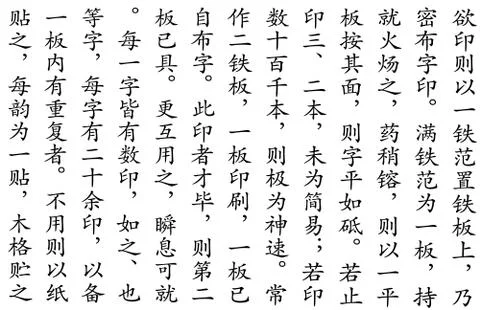 欲印则以一铁范置铁板上，乃
密布字印。满铁范为一板，持
就火炀之，药稍镕，则以一平
板按其面，则字平如砥。若止
印三、二本，未为简易；若印
数十百千本，则极为神速。常
作二铁板，一板印刷，一板已
自布字。此印者才毕，则第二
板已具。更互用之，瞬息可就
。每一字皆有数印，如之、也
等字，每字有二十余印，以备
一板内有重复者。不用则以纸
贴之，每韵为一贴，木格贮之